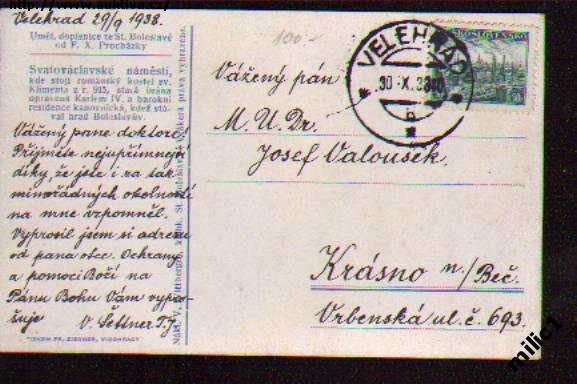 http://www.aukcia.cz/
Velehrad 29/9 1938.
Uměl. dopisnice ze St. Boleslavě
od F. X. Procházky
Svatováclavské náměstí,
kde stojí románský kostel sv.
Klimenta z r. 915, stará brána
opravená Karlem IV. a barokní
residence kanovnická, kdež stá-
val hrad Boleslavův.
Vážený pane doktore!
Přijměte nejupřímnější
díky, že jste i za tak
mimořádných okolností
na mne vzpomněl.
Vyprosil jsem si adresu
od pana otce. Ochrany
a pomoci Boží na
Pánu Bohu Vám vypro-
šuje V. Šettner T.J.
TISKEM FR. ZIEGNER, VINOHRADY
práva vyhrazena.
100-
VELEHRAD
30 IX. 38
b
ČESKOSLOVENSKO
50
Vážený pán
M. U. Dr.
Josef Valoušek.
Krásno n/Beč.
Vrbenská ul. č. 693.
milic1